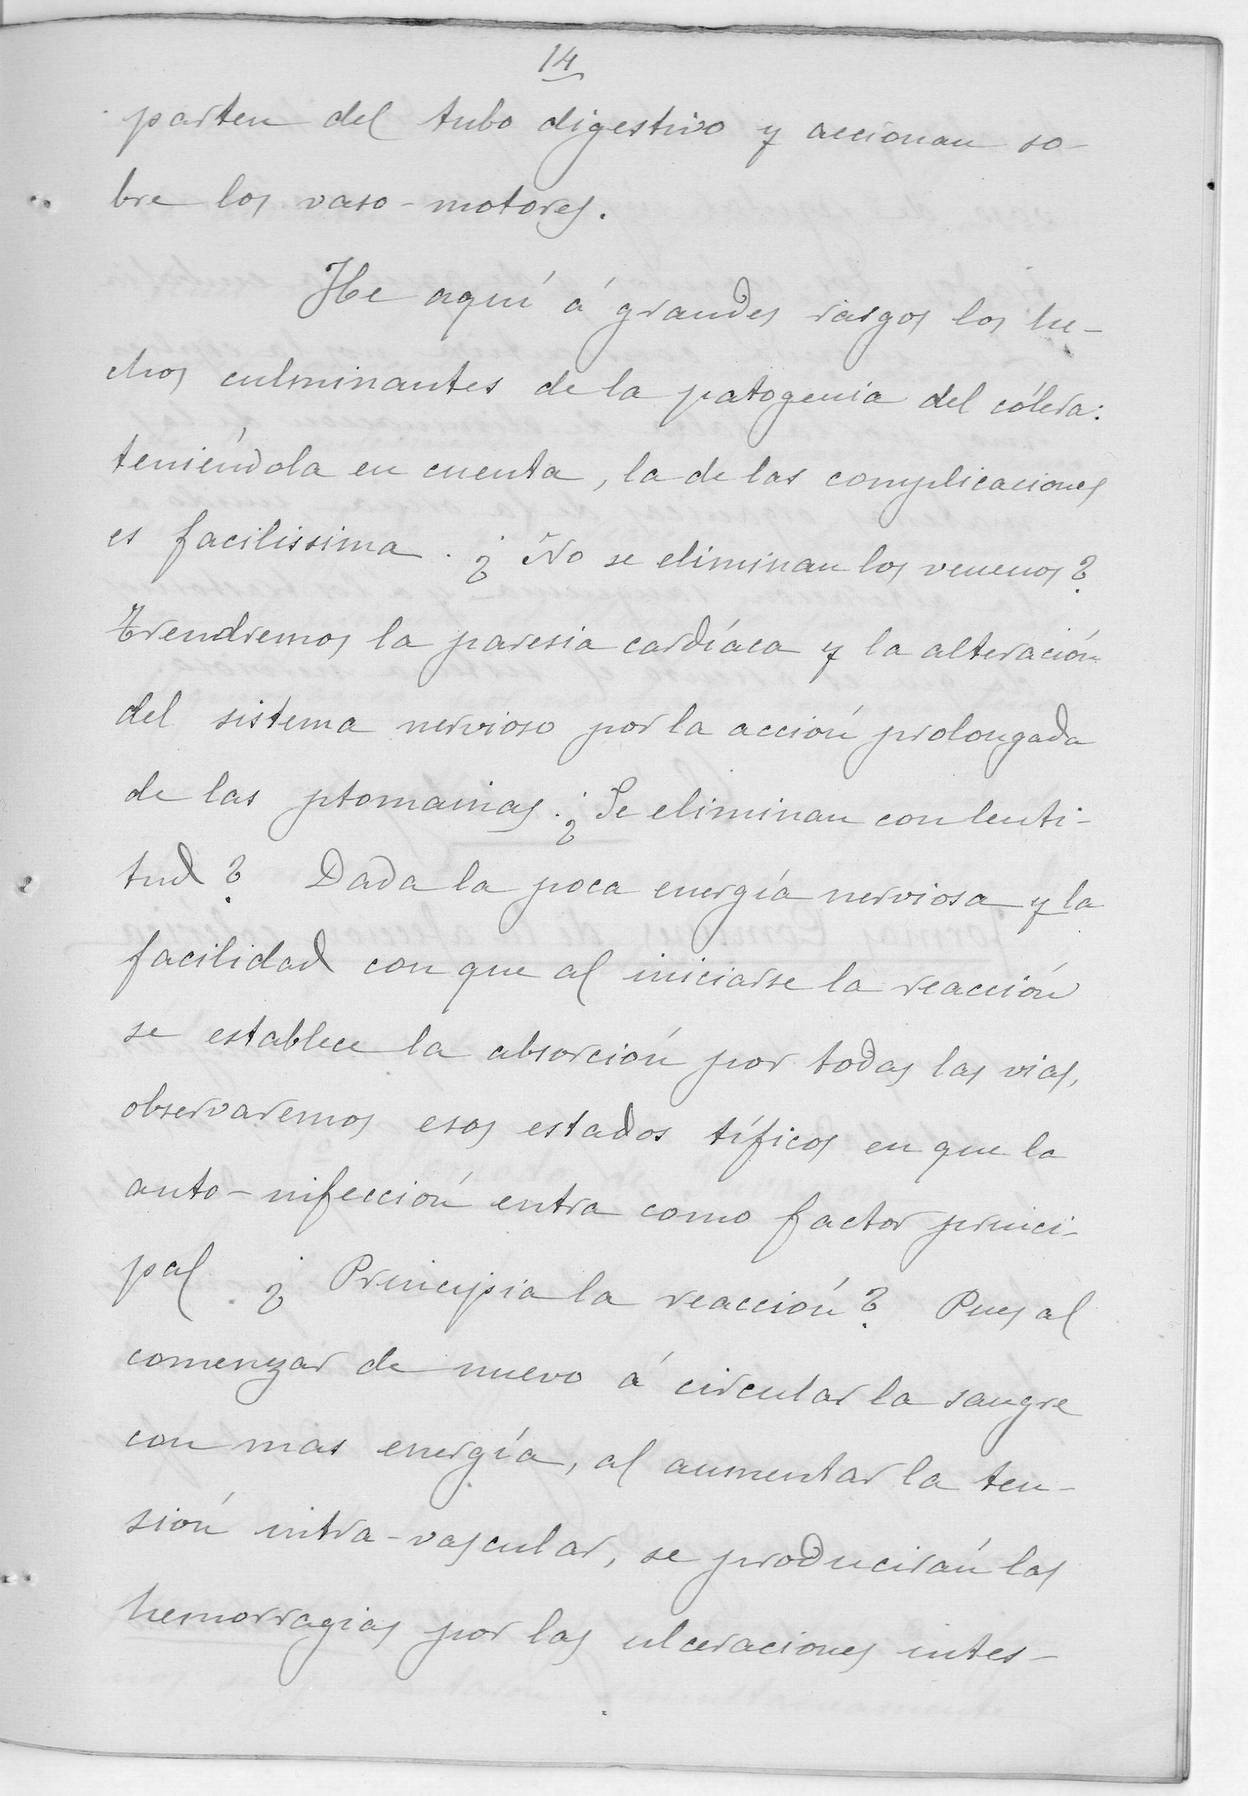 14
parten del tubo digestivo y accionan so-
bre los vaso-motores.
He aquí á grandes rasgos los he-
chos culminantes de la patogenia del cólera:
teniéndola en cuenta, la de las complicaciones
es facilissima. ¿No se eliminan los venenos?
Trendremos la paresia cardíaca y la alteración
del sistema nervioso por la acción prolongada
de las ptomainas. ¿Se eliminan con lenti-
tud? Dada la poca energía nerviosa y la
facilidad con que al iniciarse la reacción
se establece la absorción por todas las vias,
observaremos esos estados tíficos en que la
auto-infección entra como factor princi-
pal. ¿Principia la reacción? Pues al
comenzar de nuevo á circular la sangre
con mas energía, al aumentar la ten-
sión intra-vascular, se producirán las
hemorragias por las ulceraciones intes-